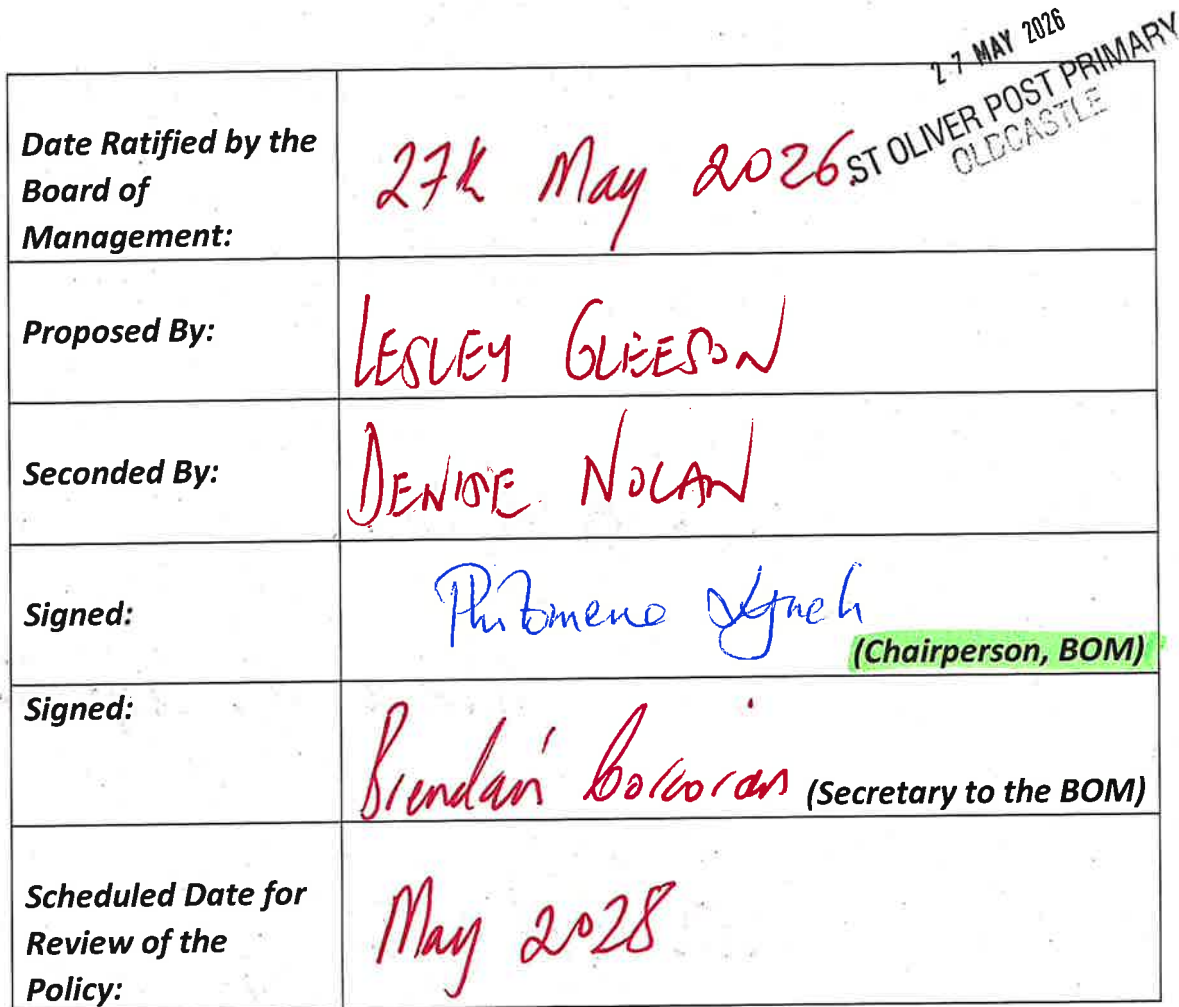 27 MAY 2026
ST OLIVER POST PRIMARY
OLDCASTLE
Date Ratified by the
Board of
Management:
27th May 2026
Proposed By:
LESLEY GLEESON
Seconded By:
DENISE NOLAN
Signed:
Philomena Lynch
(Chairperson, BOM)
Signed:
Brendan Corcoran (Secretary to the BOM)
Scheduled Date for
Review of the
Policy:
May 2028